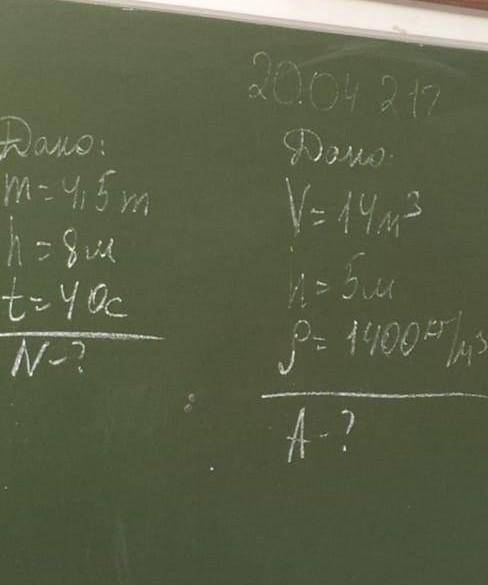 20.04 217
Дано:
m=4,5т
h=8м
t=40с
N-?
Дано.
V=14м³
h=5м
ρ=1400кг/м³
A-?